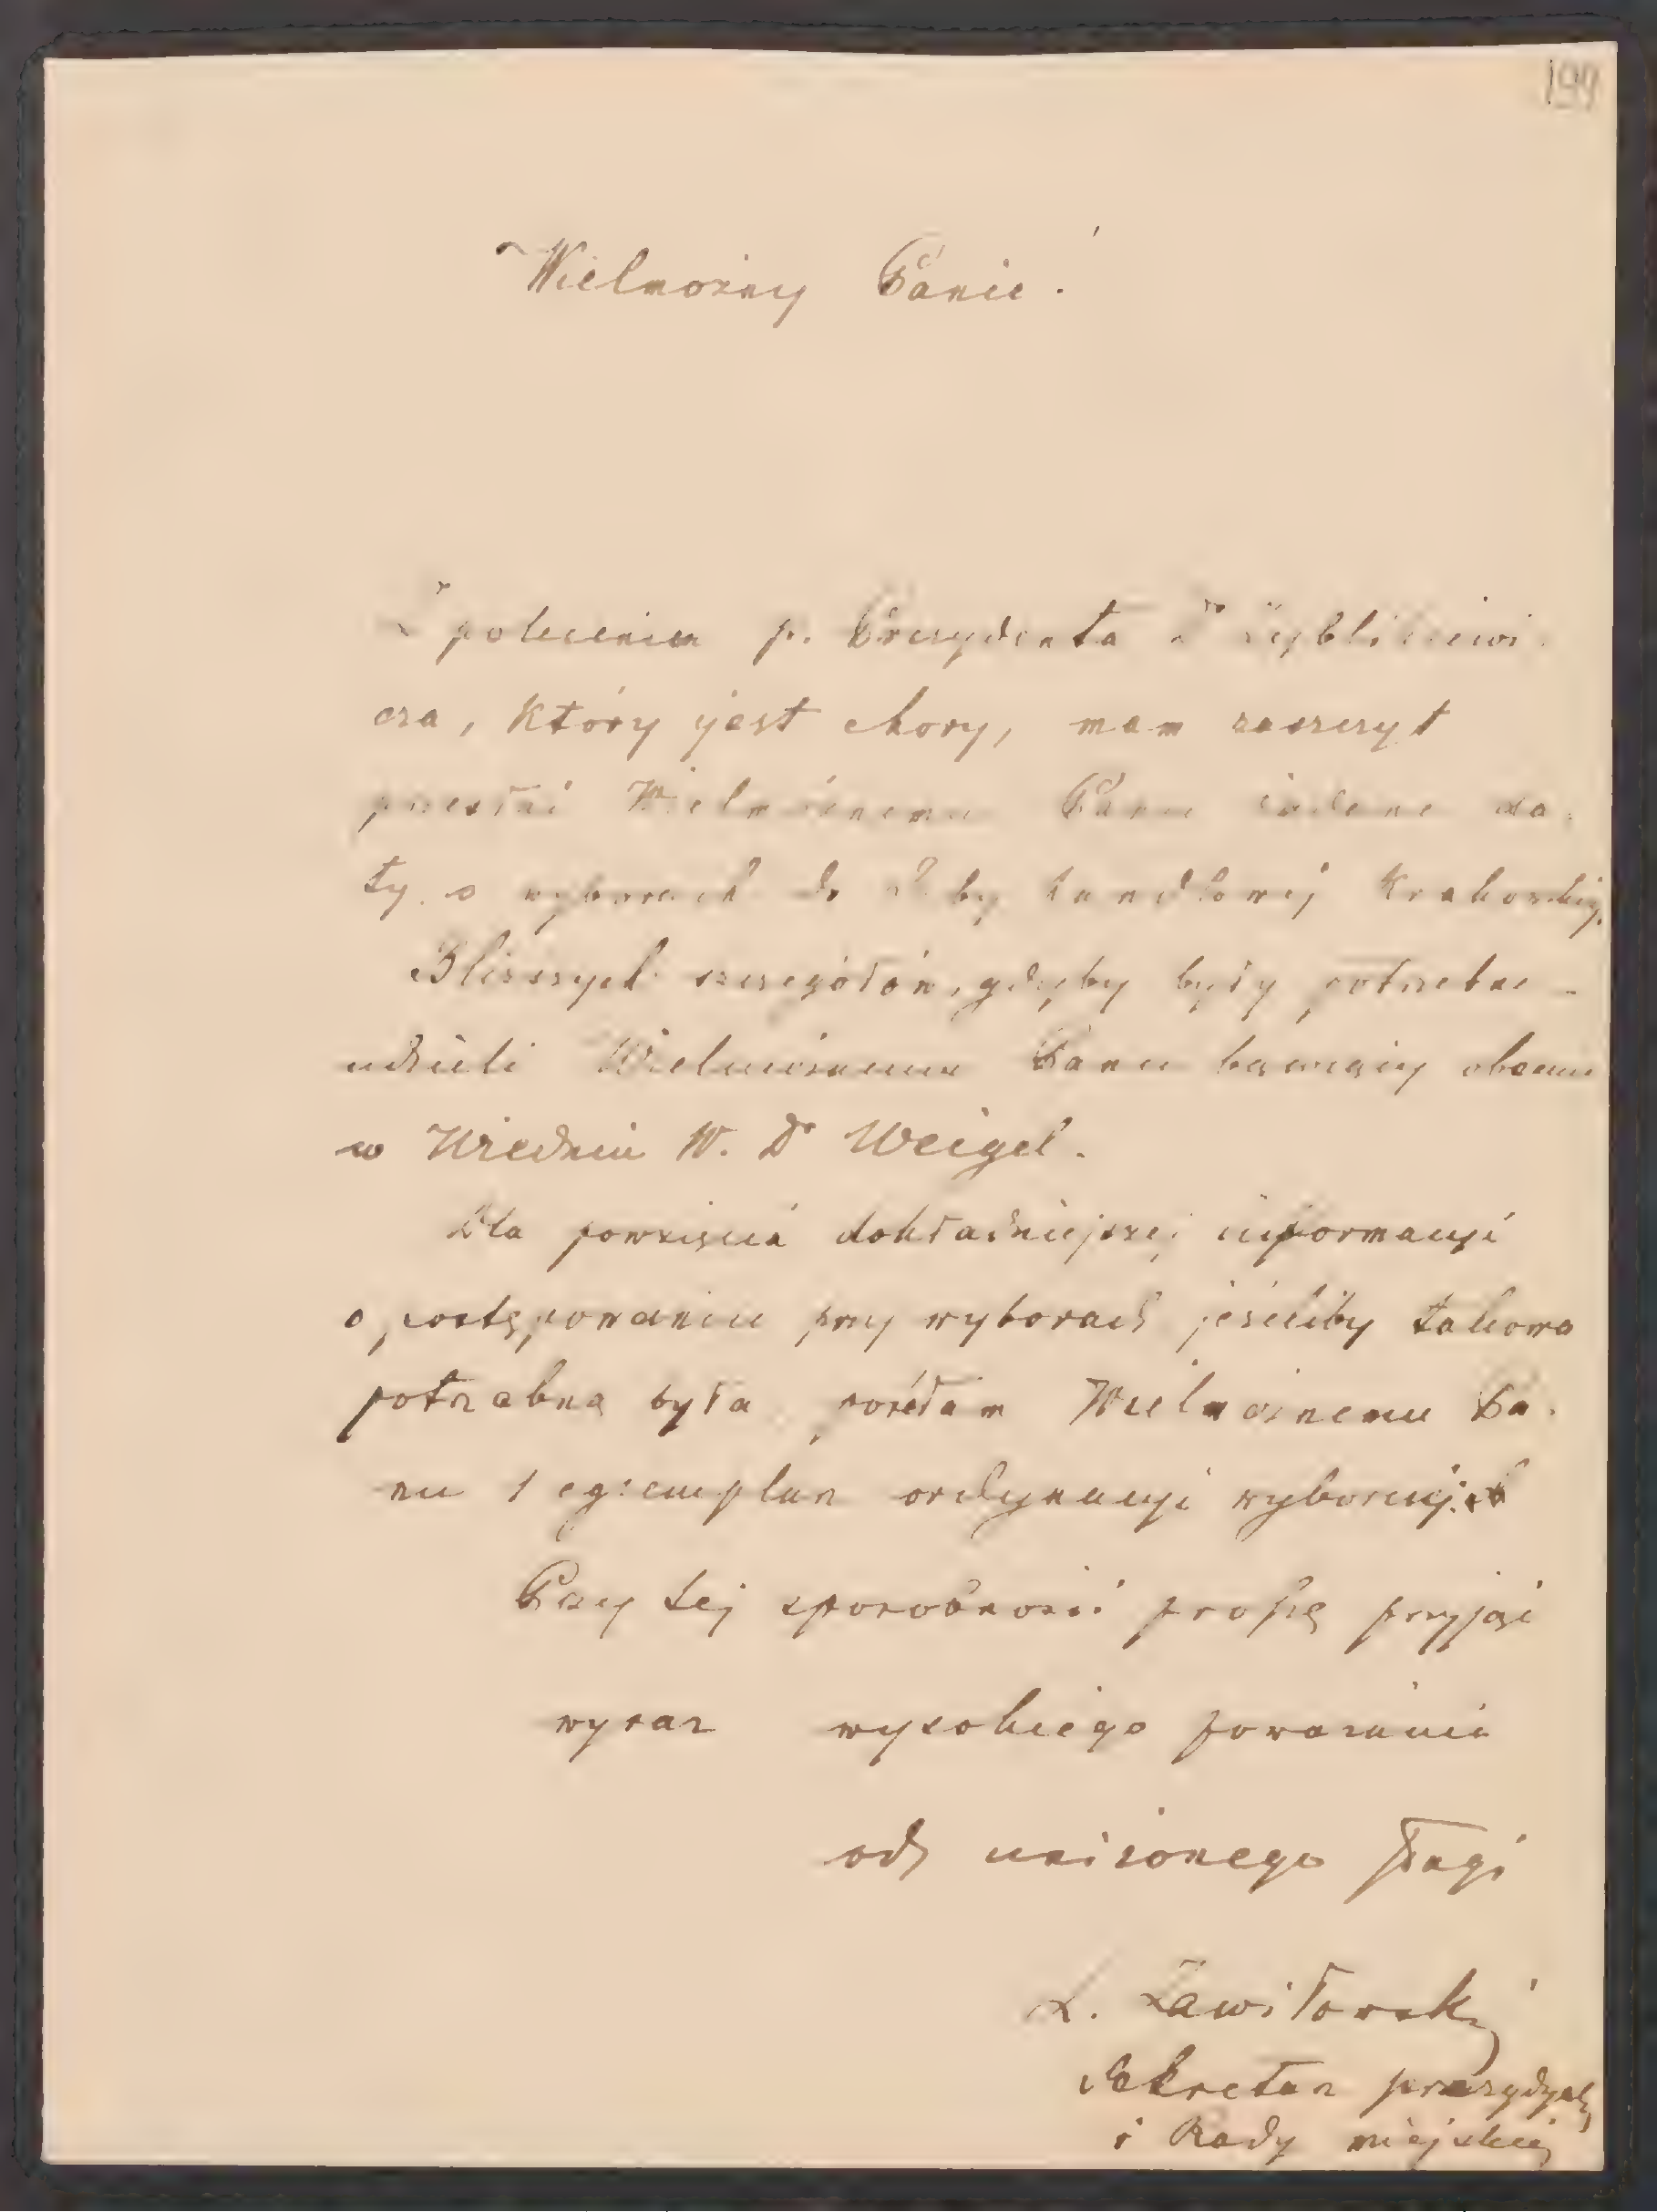 199
Wielmożny Panie!
Z polecenia p. Prezydenta Dr Zyblikiewi-
cza, który jest chory, mam zaszczyt
przesłać Wielmożnemu Panu żądane da-
ty o wyborach do Izby handlowej Krakowskiej.
Bliższych szczegółów, gdyby były potrzebne -
udzieli Wielmożnemu Panu bawiący obecnie
w Wiedniu W. Dr Weigel.
Dla powzięcia dokładniejszej informacyi
o postępowaniu przy wyborach jeśliby takowa
potrzebną była posełam Wielmożnemu Pa-
nu 1 egzemplarz ordynacyi wyborczej.
Przy tej sposobności proszę przyjąć
wyraz wysokiego poważania
od uniżonego sługi
L. Zawiłowski
Sekretarz prezydyalny
i Rady miejskiej